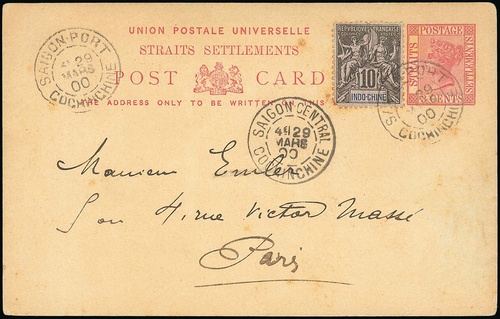 UNION POSTALE UNIVERSELLE
STRAITS SETTLEMENTS
POST CARD
THE ADDRESS ONLY TO BE WRITTEN
SAIGON-PORT
29
MARS
00
COCHINCHINE
REPUBLIQUE FRANÇAISE
10
INDO-CHINE
POSTAGE
STRAITS
CENTS
PORT
MARS
00
COCHINCHINE
SAIGON CENTRAL
4E 29
MARS
00
COCHINCHINE
Monsieur
4, rue Victor Massé
Paris